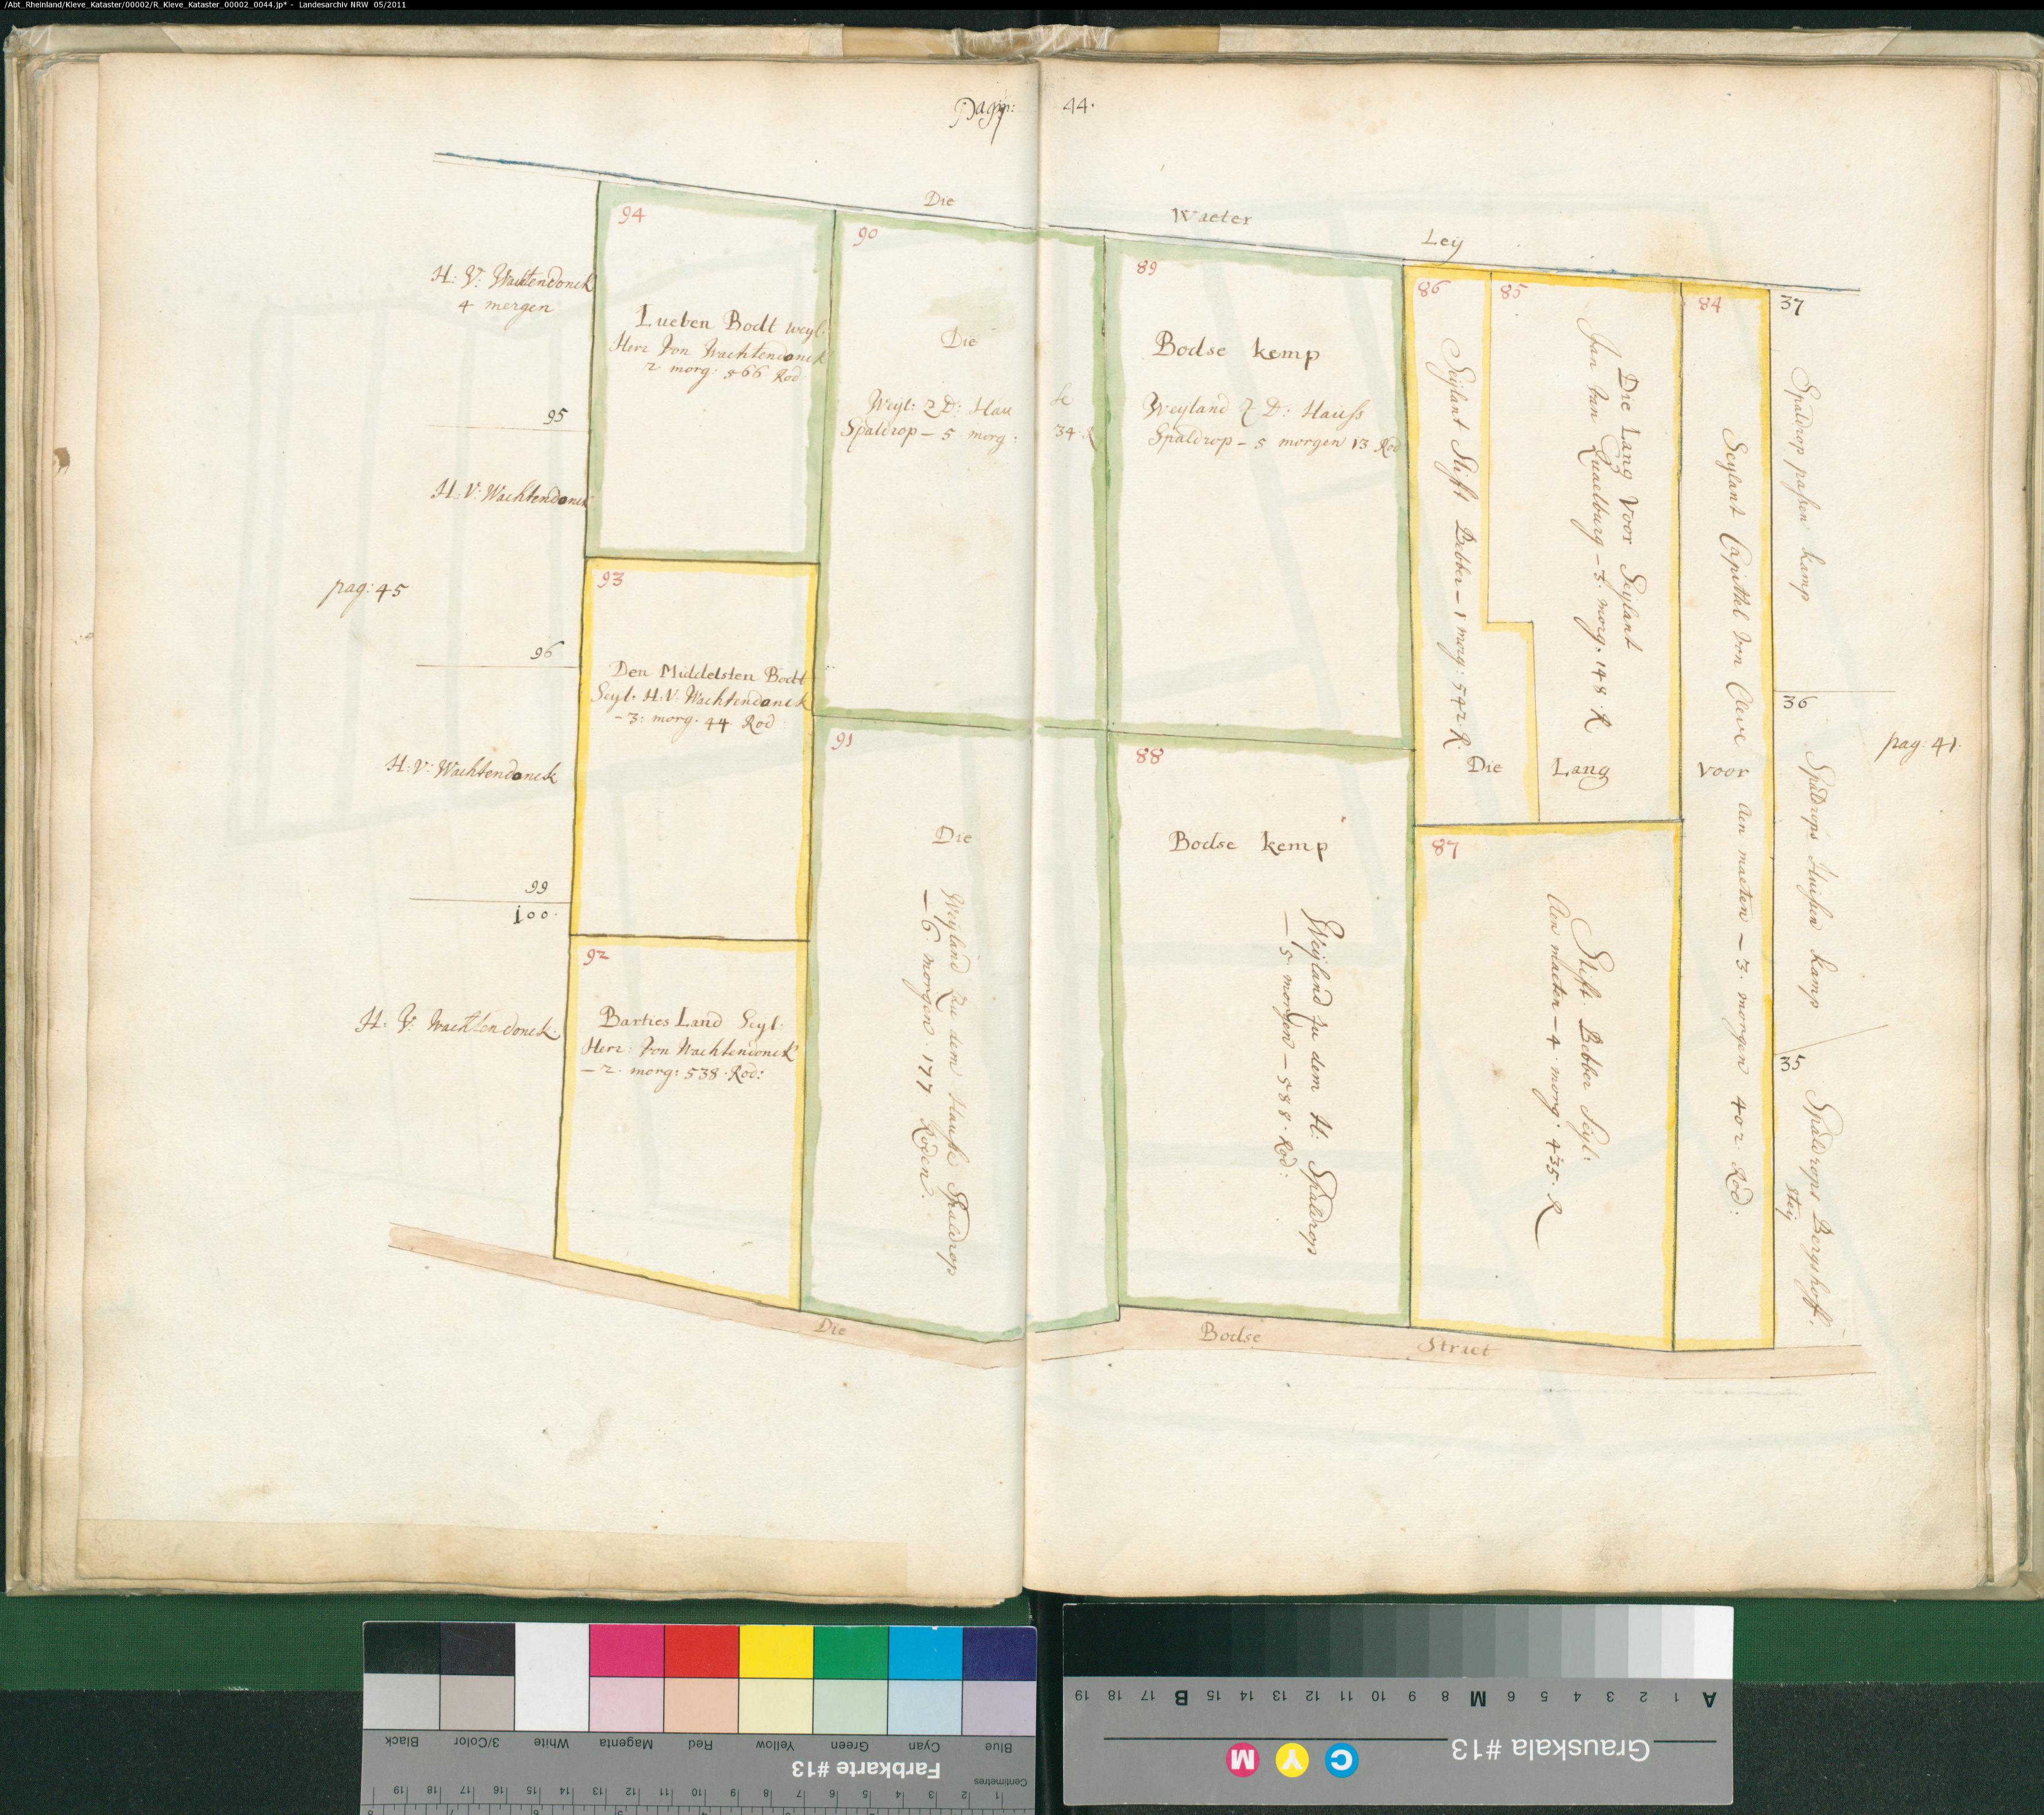 /Abt_Rheinland/Kleve_Kataster/00002/R_Kleve_Kataster_00002_0044.jp* - Landesarchiv NRW 05/2011
Pag: 44.
Die Waeter Leÿ
H: V: Wachtendonck
4 mergen
95
H: V: Wachtendonck
pag: 45
96
H: V: Wachtendonck
99
100.
H. V. Wachtendonck.
94
Lueben Bodt weyl:
Herr Von Wachtendonck
2 morg: 566 Rod
93
Den Middelsten Bodt
Seyl. H: V: Wachtendonck
- 3: morg. 44. Rod:
92
Barties Land Seyl:
Herr: Von Wachtendonck
- 2. morg: 538. Rod:
90
Die
Weyl: Z D: Hau se
Spaldrop - 5 morg: 34. R
91
Die
Weyland Zu dem Hause Spaldrop
- 6. morgen. 177 Roden.
89
Bodse kemp
Weyland Z D: Hauss
Spaldrop - 5 morgen 13 Rod
88
Bodse kemp
Weyland zu dem H: Spaldrop
- 5 morgen - 588. Rod:
86
Seylant Stift Bebber - 1 morg: 542 R.
85
Die Lang Voor Seylant
Jan Van Qualburg - 3. morg. 148. R
Die Lang Voor
84
Seylant Capittel Von Cleve Aen maeten - 3 morgen 402 Rod:
87
Stift Bebber Seyl:
Aen maeten - 4. morg. 435. R
37
Spaldrop passen kamp
36
Spaldrops Huisen kamp
35
Spaldrops Bergshoff.
steÿ
pag: 41.
Die Bodse Straet
Black
3/Color
White
Magenta
Red
Yellow
Green
Cyan
Blue
Farbkarte #13
Centimetres
19 18 17 16 15 14 13 12 11 10 9 8 7 6 5 4 3 2 1
19 18 17 B 15 14 13 12 11 10 9 8 M 6 5 4 3 2 1 A
Grauskala #13
M Y C